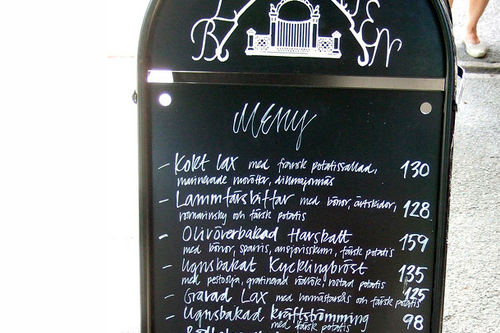 MENY
- Kokt lax med fransk potatissallad, 130
marinerade morötter, dillmajonnäs
- Lammfärsbiffar med bönor, ärtskidor, 128
rosmarinsky och färsk potatis
- Olivöverbakad Havskatt 159
med bönor, sparris, ansjovisskum, färsk potatis
- Ugnsbakat Kycklingbröst 135
med pestosås, gratinerad rödlök, rostad potatis
- Gravad Lax med hovmästarsås och färsk potatis 125
- Ugnsbakad Kräftströmming 98
med färsk potatis